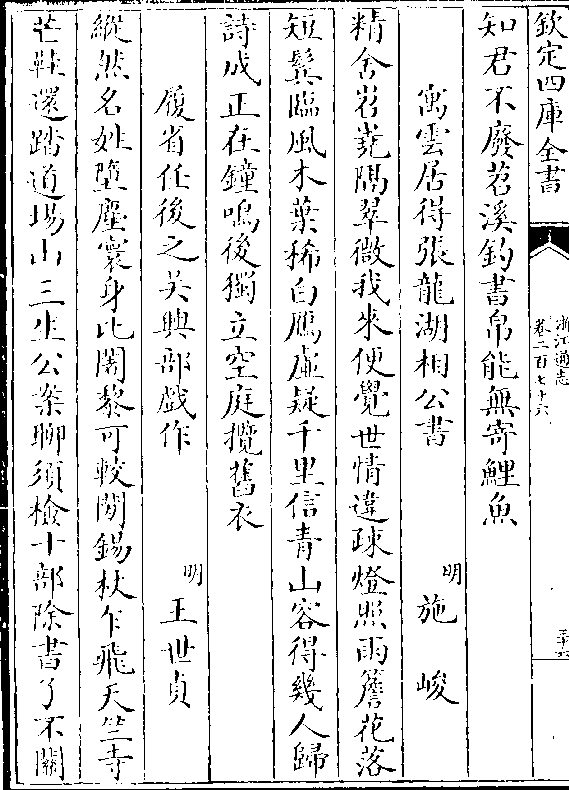 欽定四庫全書
浙江通志
卷二百七十六
三十六
知君不廢苕溪釣書帛能無寄鯉魚
寓雲居得張龍湖相公書
明 施峻
精舍岧嶤隔翠微我來便覺世情違疎燈照雨簷花落
短鬂臨風木葉稀白鴈虛疑千里信青山容得幾人歸
詩成正在鐘鳴後獨立空庭攬舊衣
履省任後之吳興部戲作
明 王世貞
縱然名姓墮塵寰身比闍黎可較閒錫杖乍飛天竺寺
芒鞋還踏道場山三生公案聊須檢十部除書了不關